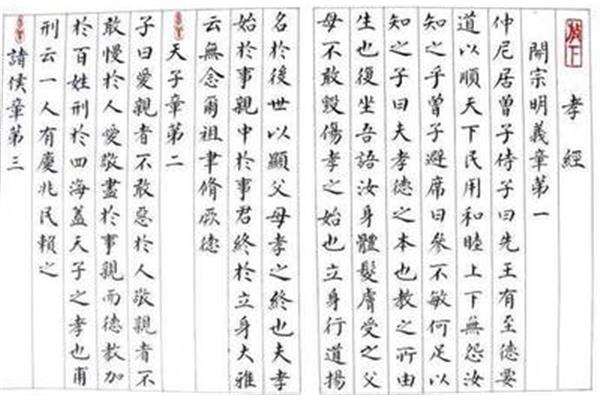 孝經
開宗明義章第一
仲尼居曾子侍子曰先王有至德要
道以順天下民用和睦上下無怨汝
知之乎曾子避席曰參不敏何足以
知之子曰夫孝德之本也教之所由
生也復坐吾語汝身體髮膚受之父
母不敢毀傷孝之始也立身行道揚
名於後世以顯父母孝之終也夫孝
始於事親中於事君終於立身大雅
云無念爾祖聿脩厥德
天子章第二
子曰愛親者不敢惡於人敬親者不
敢慢於人愛敬盡於事親而德教加
於百姓刑於四海蓋天子之孝也甫
刑云一人有慶兆民賴之
諸侯章第三